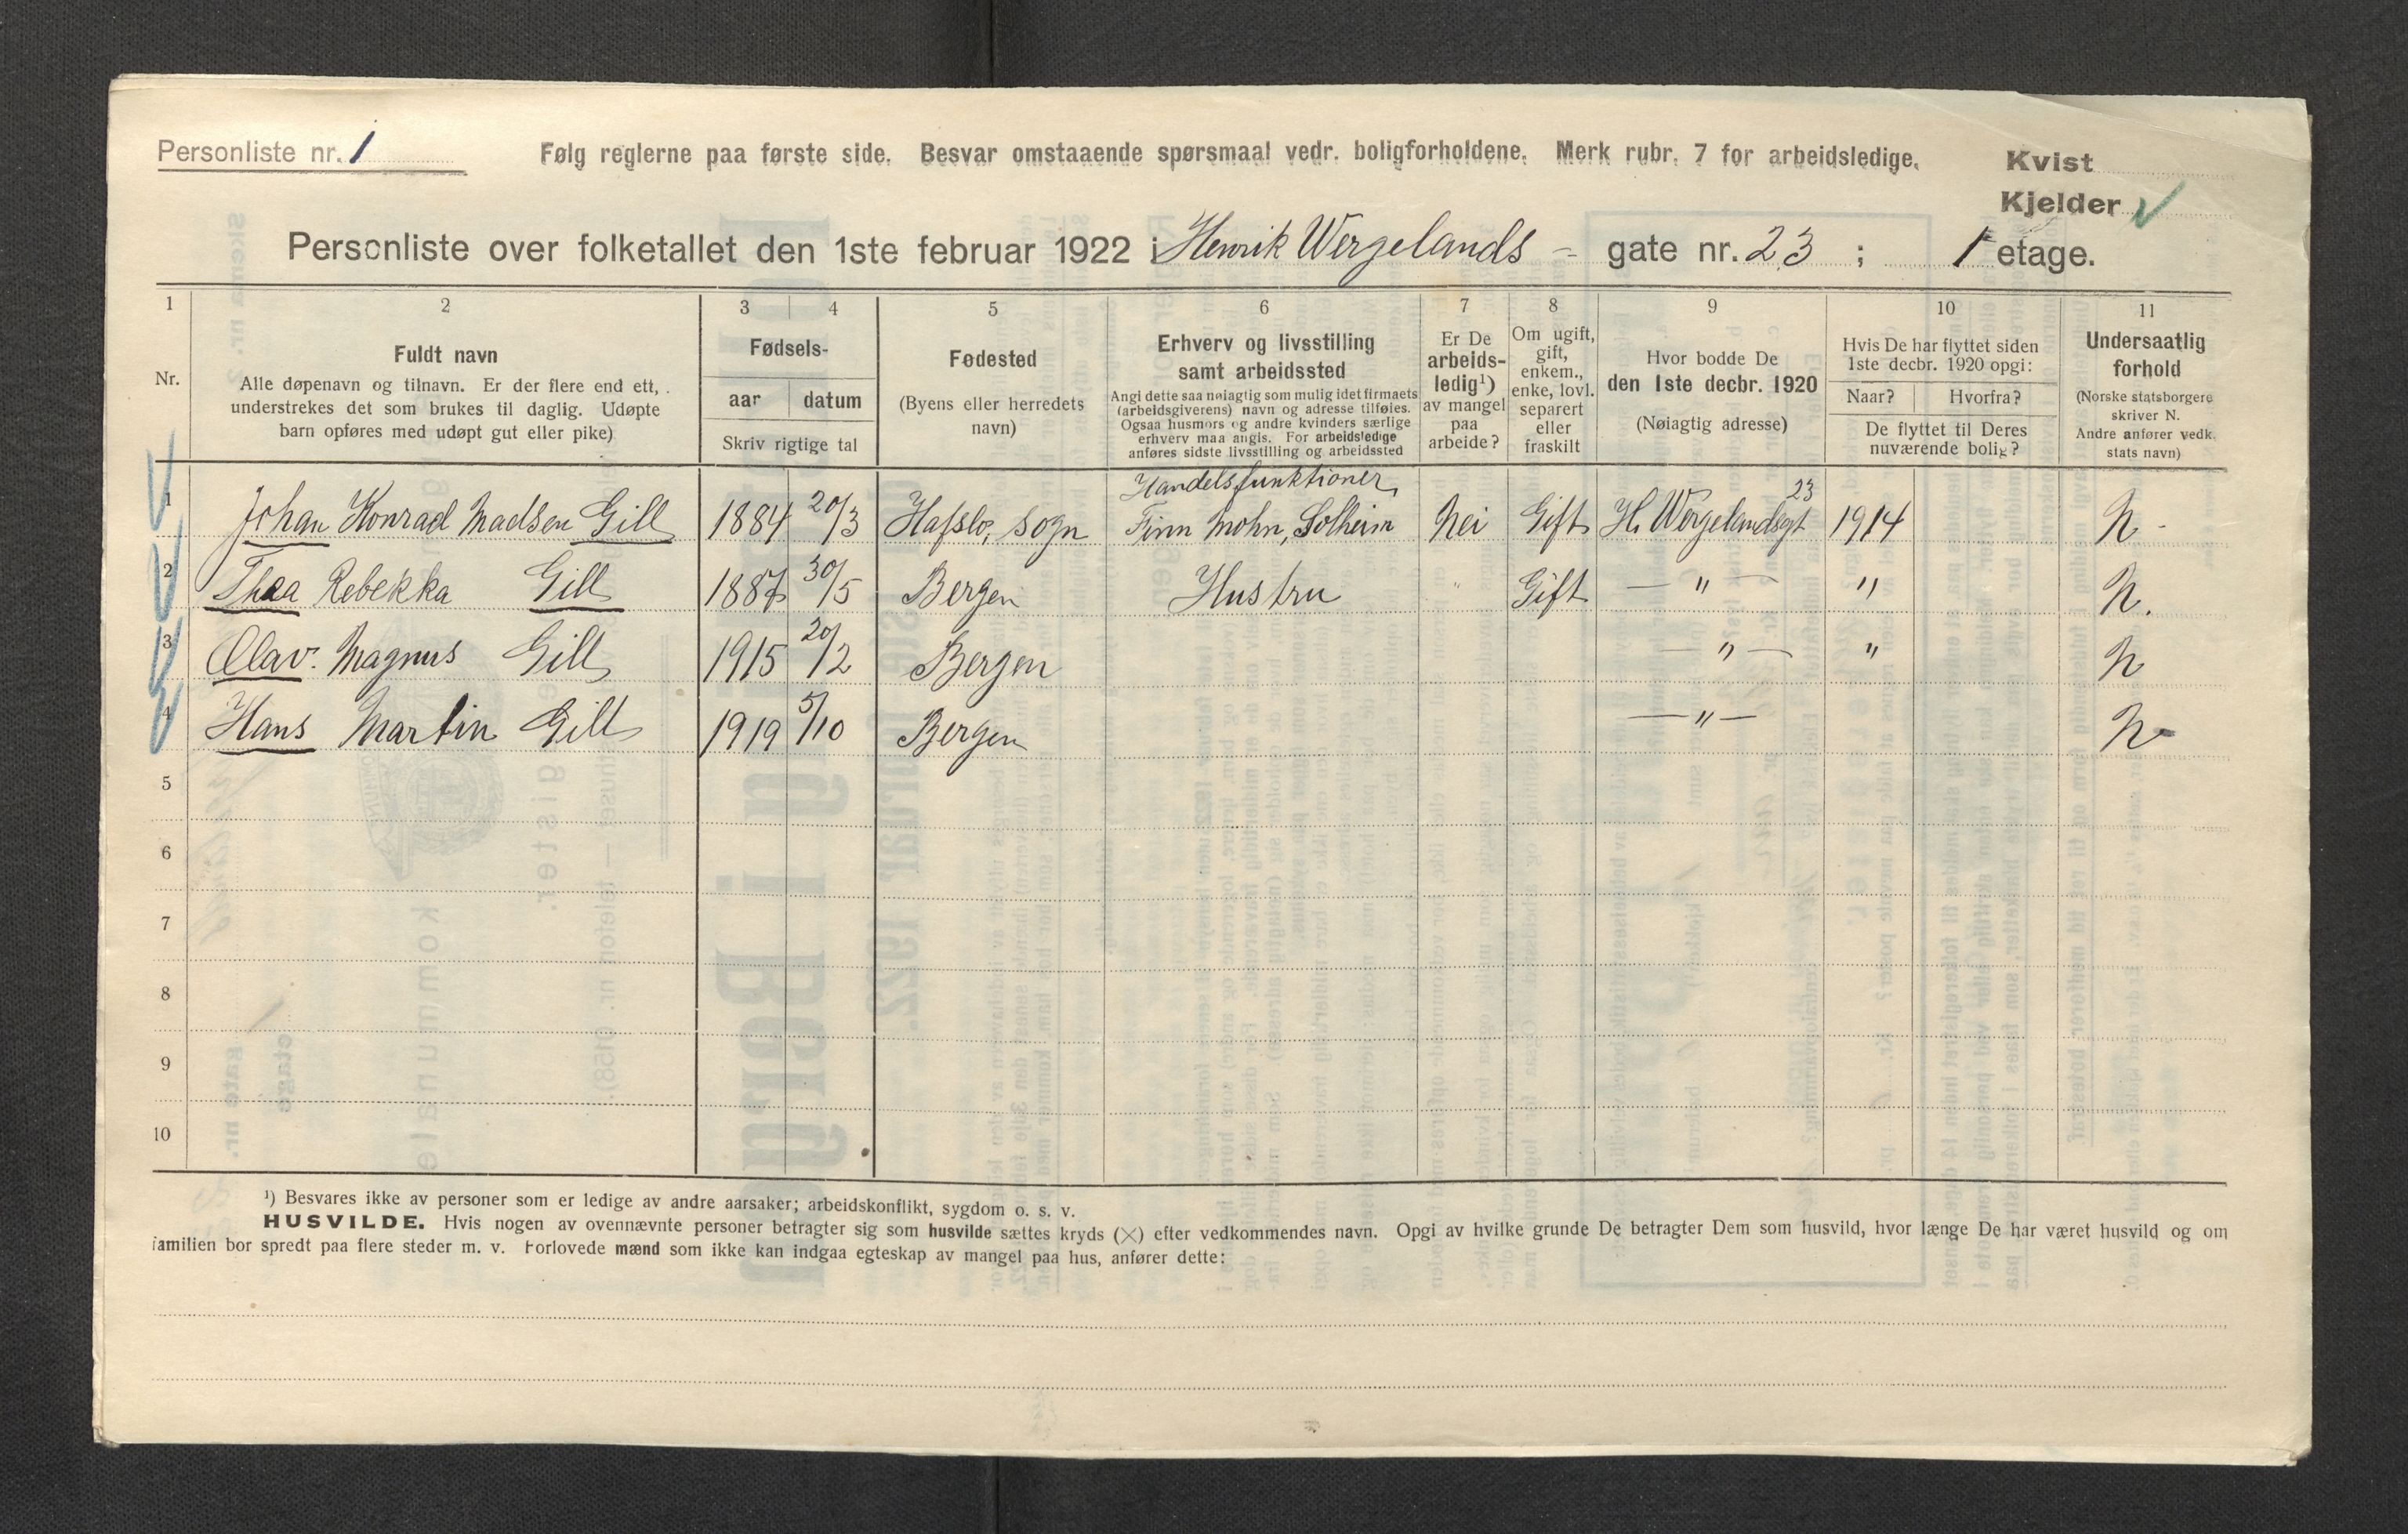 Personliste nr. 1
Følg reglerne paa første side. Besvar omstaaende spørsmaal vedr. boligforholdene. Merk rubr. 7 for arbeidsledige.
Kvist
Kjelder
Personliste over folketallet den 1ste februar 1922 i Henrik Wergelands - gate nr. 23 ; 1 etage.
1 2 3 4 5 6 7 8 9 10 11
Nr.
Fuldt navn
Alle døpenavn og tilnavn. Er der flere end ett,
understrekes det som brukes til daglig. Udøpte
barn opføres med udøpt gut eller pike)
Fødsels-
aar datum
Skriv rigtige tal
Fødested
(Byens eller herredets
navn)
Erhverv og livsstilling
samt arbeidssted
Angi dette saa nøiagtig som mulig idet firmaets
(arbeidsgiverens) navn og adresse tilføies.
Ogsaa husmors og andre kvinders særlige
erhverv maa angis. For arbeidsledige
anføres sidste livsstilling og arbeidssted
Er De
arbeids-
ledig¹)
av mangel
paa
arbeide?
Om ugift,
gift,
enkem.,
enke, lovl.
separert
eller
fraskilt
Hvor bodde De
den 1ste decbr. 1920
(Nøiagtig adresse)
Hvis De har flyttet siden
1ste decbr. 1920 opgi:
Naar? Hvorfra?
De flyttet til Deres
nuværende bolig?
Undersaatlig
forhold
(Norske statsborgere
skriver N.
Andre anfører vedk.
stats navn)
Handelsfunktioner
1 Johan Konrad Madsen Gill 1884 20/3 Hafslo, Sogn Finn Mohn, Solheim Nei Gift H. Wergelandsgt 23 1914 N -
2 Thea Rebekka Gill 1887 30/5 Bergen Hustru " Gift — " — " N.
3 Olav. Magnus Gill 1915 20/2 Bergen — " — " N
4 Hans Martin Gill 1919 5/10 Bergen — " — N
5
6
7
8
9
10
¹) Besvares ikke av personer som er ledige av andre aarsaker; arbeidskonflikt, sygdom o. s. v.
HUSVILDE. Hvis nogen av ovennævnte personer betragter sig som husvilde sættes kryds (×) efter vedkommendes navn. Opgi av hvilke grunde De betragter Dem som husvild, hvor længe De har været husvild og om
familien bor spredt paa flere steder m. v. Forlovede mænd som ikke kan indgaa egteskap av mangel paa hus, anfører dette: